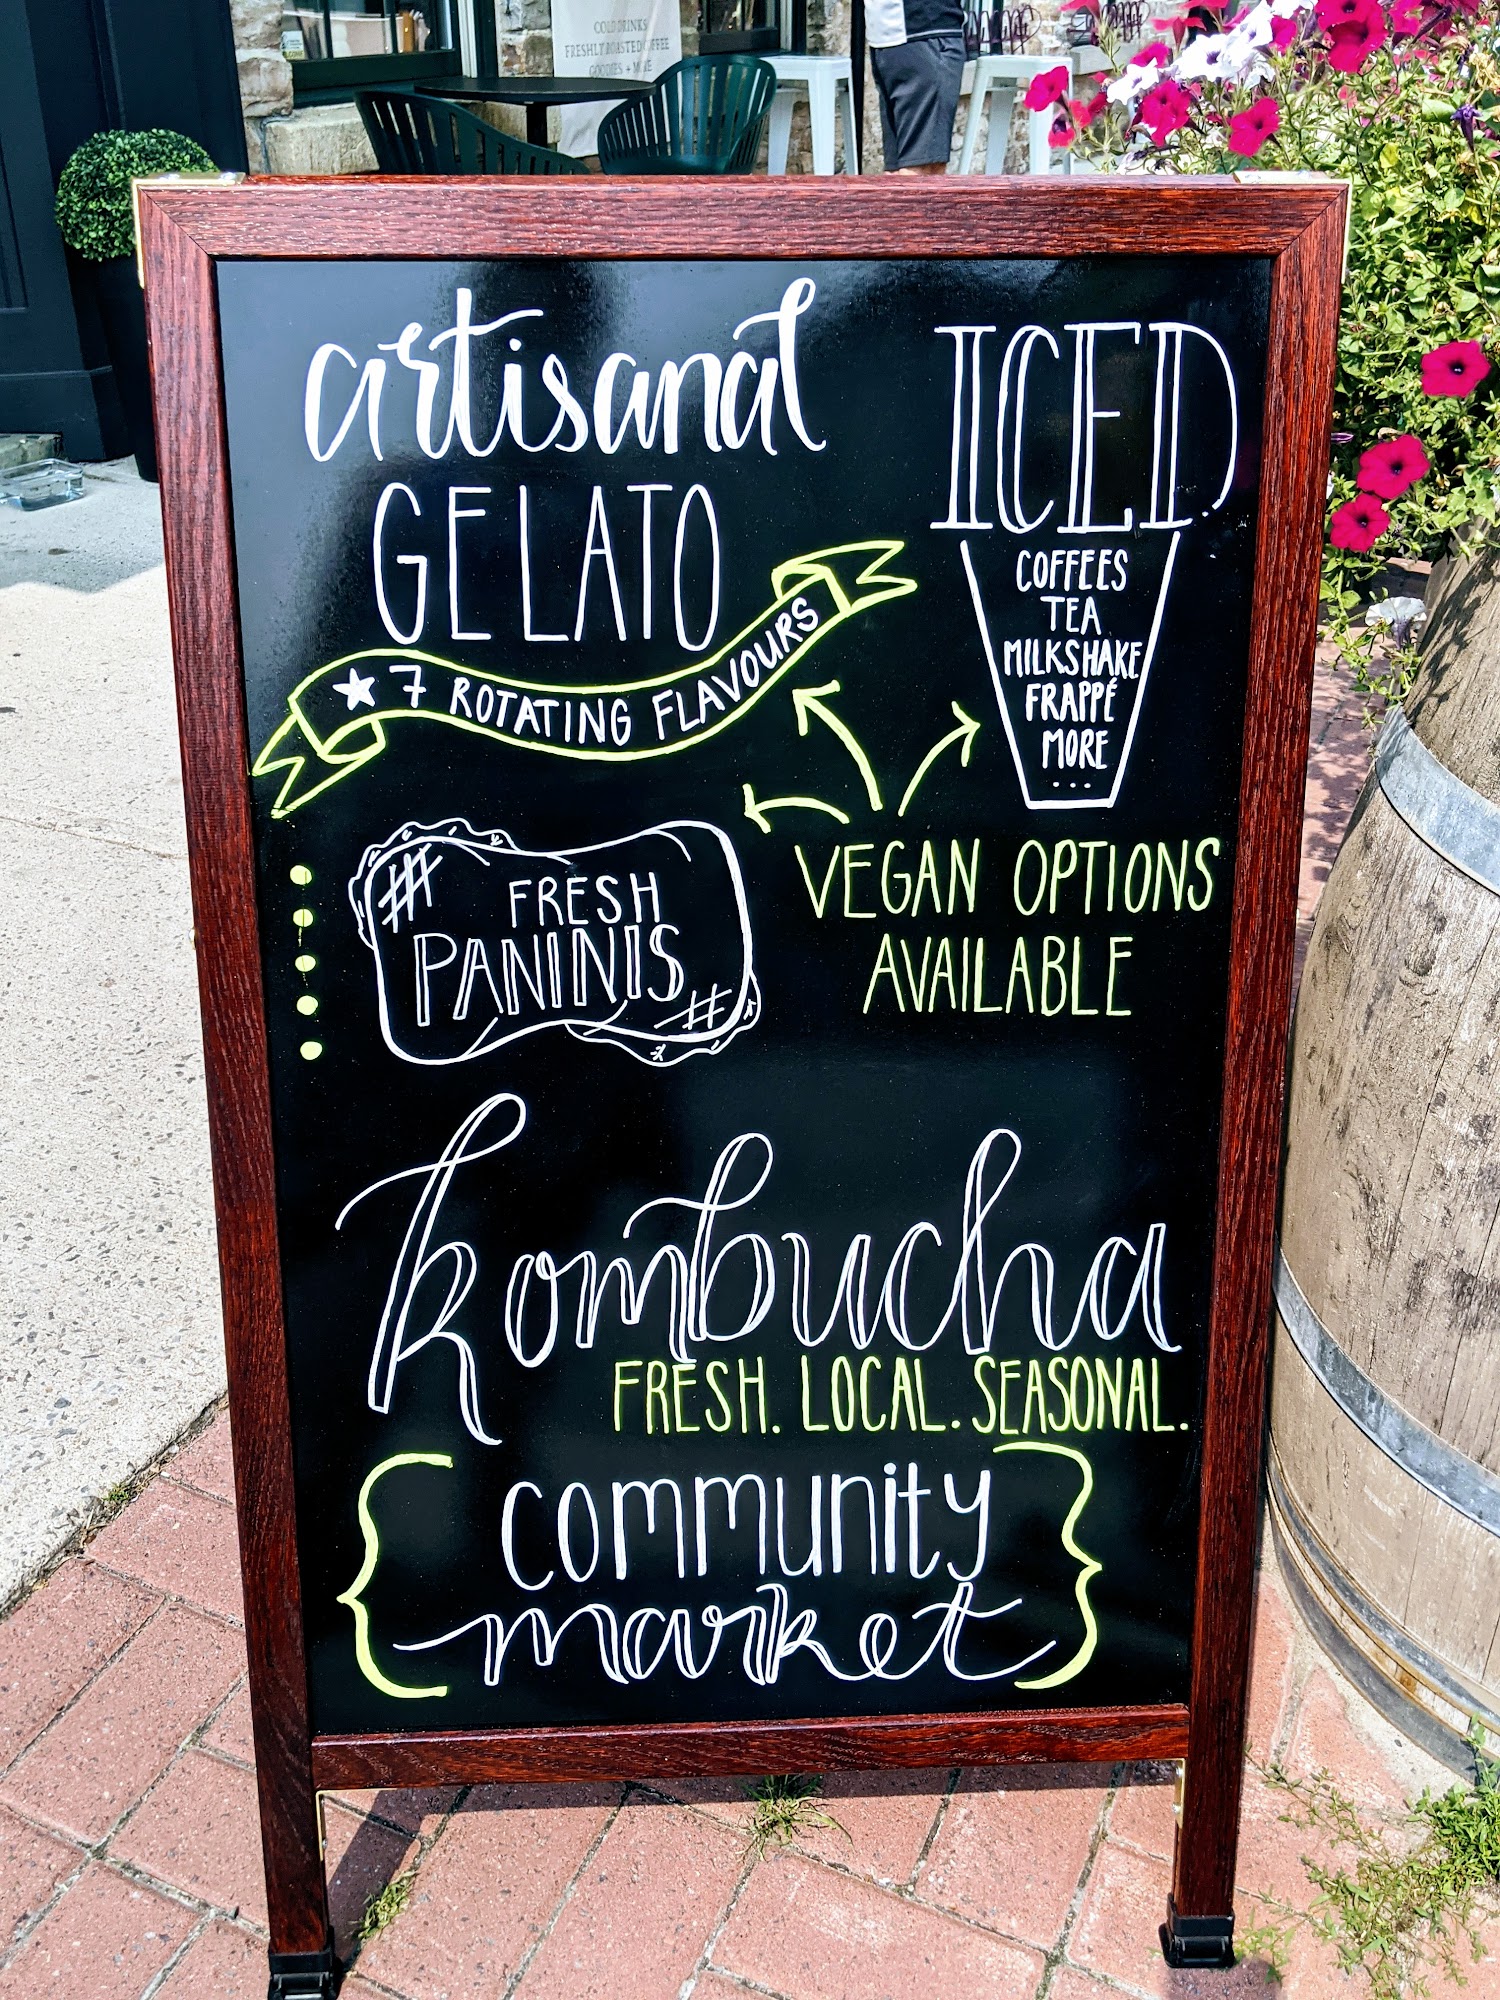 COLD DRINKS
FRESHLY ROASTED COFFEE
GOODIES + MORE
artisanal
GELATO
★ 7 ROTATING FLAVOURS
ICED
COFFEES
TEA
MILKSHAKE
FRAPPÉ
MORE
...
FRESH
PANINIS
VEGAN OPTIONS
AVAILABLE
kombucha
FRESH. LOCAL. SEASONAL.
{community
market}